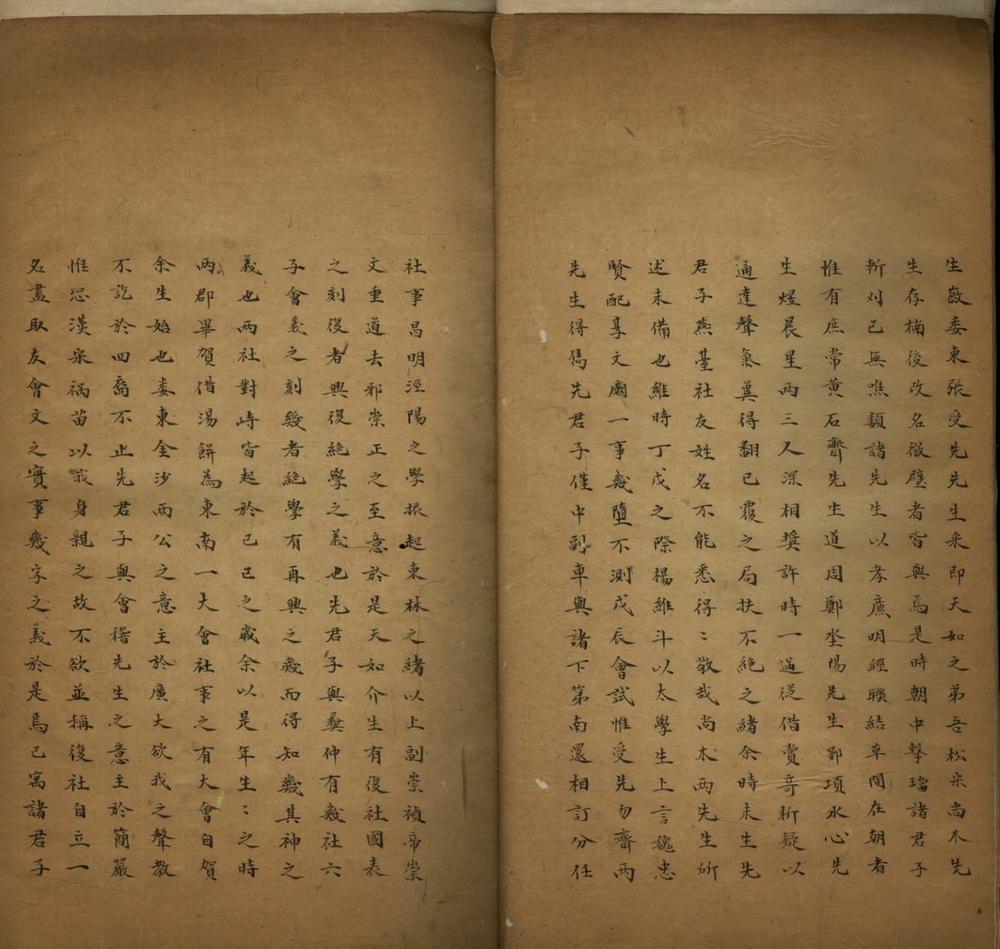 生嶽委東張受先先生采即天如之弟吾松宋尚木先
生存楠後改名徵璧者皆與焉是時朝中擊璫諸君子
斬刈已無噍類諸先生以孝廉明經聯結草間在朝者
惟有庶常黄石齊先生道周鄭坐陽先生鄤項水心先
生煜晨星兩三人深相獎許時一過從借賞竒析疑以
通達聲氣冀得翻已覆之局扶不絶之緒余時未生先
君子燕臺社友姓名不能悉得：敬哉尚木兩先生所
述未備也維時丁戊之際楊維斗以太學生上言魏忠
賢配享文廟一事幾墮不測戊辰會試惟受先勿齊兩
先生得雋先君子僅中副車與諸下第南還相訂分任
社事昌明涇陽之學振起東林之緒以上副崇禎帝崇
文重道去邪崇正之至意於是天如介生有復社國表
之刻復者興復絶學之義也先君子與彝仲有幾社六
子會義之刻幾者絶學有再興之幾而得知幾其神之
義也兩社對峙皆起於己巳之歲余以是年生：之時
兩郡畢賀借湯餅為東南一大會社事之有大會自賀
余生始也婁東金沙兩公之意主於廣大欲我之聲教
不訖於四裔不止先君子與會稽先生之意主於簡嚴
惟恐漢宋禍苗以我身親之故不欲並稱復社自立一
名盡取友會文之實事幾字之義於是焉已寓諸君子